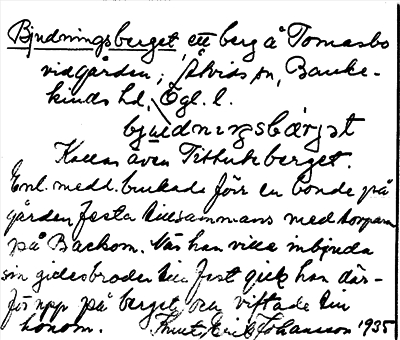 Bjudningsberget, ett berg å Tomasbo
vid gården, Åtvids sn, Banke-
kinds hd, Ögl. l.
bjudnıŋsbärjət
Kallas även Tittutsberget.
Enl. medd. brukade förr en bonde på
gården festa tillsammans med torparn
på Backom. När han ville inbjuda
sin gillesbroder till fest gick han där-
för upp på berget och viftade till
honom. Knut Erik Johansson 1935